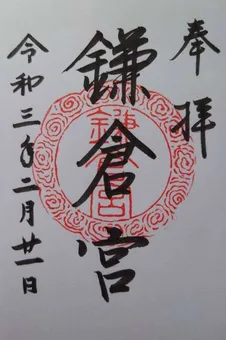 奉拝
鎌倉宮
令和三年二月廿一日
鎌倉宮